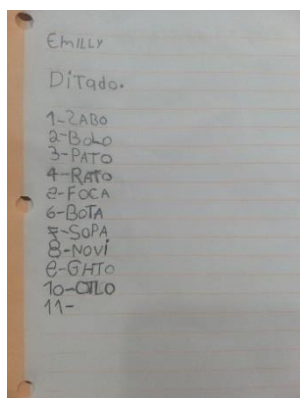 EMILLY
DiTado.
1-ZABO
2-BOLO
3-PATO
4-RATO
e-FOCA
6-BOTA
7-SOPA
8-NOVi
e-GHTO
10-OTLO
11-